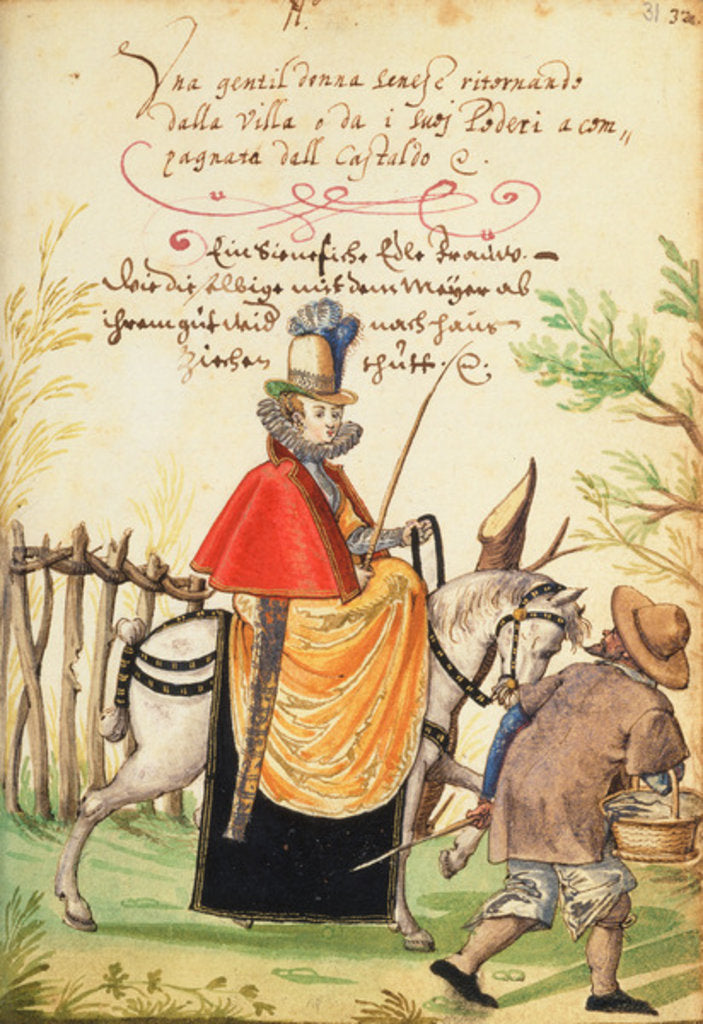 H.
31 32.
Una gentil donna senese ritornando
dalla villa o da i suoj Poderi acom„
pagnata dall Castaldo &.
Ein Sienesische Edle Frauw. —
Wie die selbige mit dem Meyer ab
ihrem gút wid nach haus
Ziechen thútt. &.